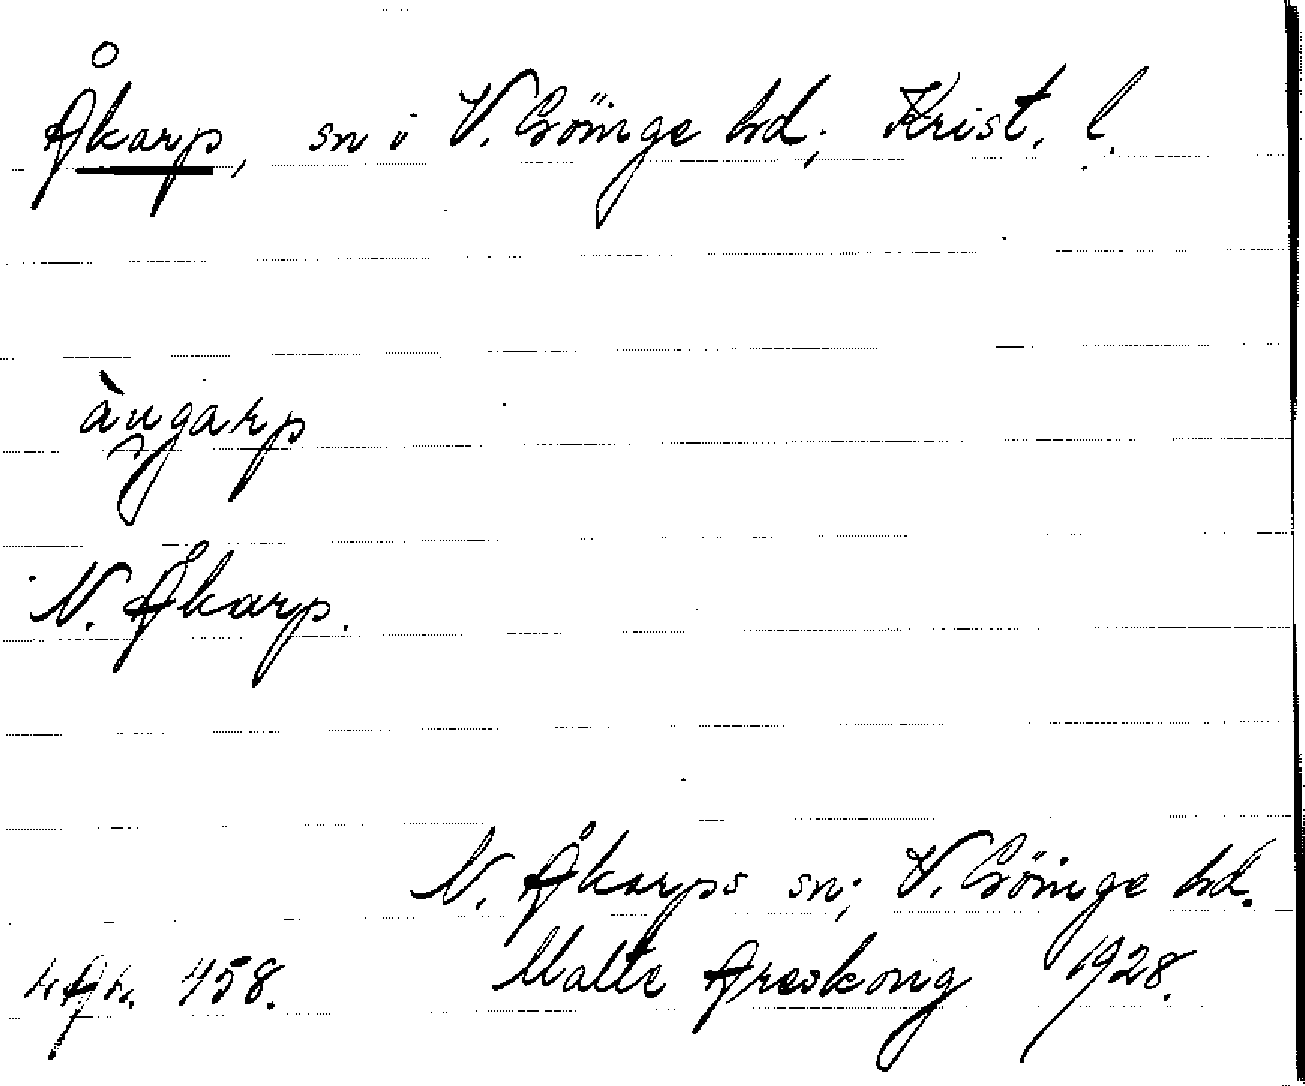 Åkarp, sn i V. Göinge hd; Krist. l.
àugarp
N. Åkarp.
N. Åkarps sn; V. Göinge hd.
458. Malte Areskoug 1928.